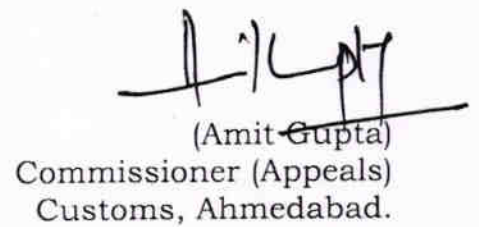 (Amit Gupta)
Commissioner (Appeals)
Customs, Ahmedabad.